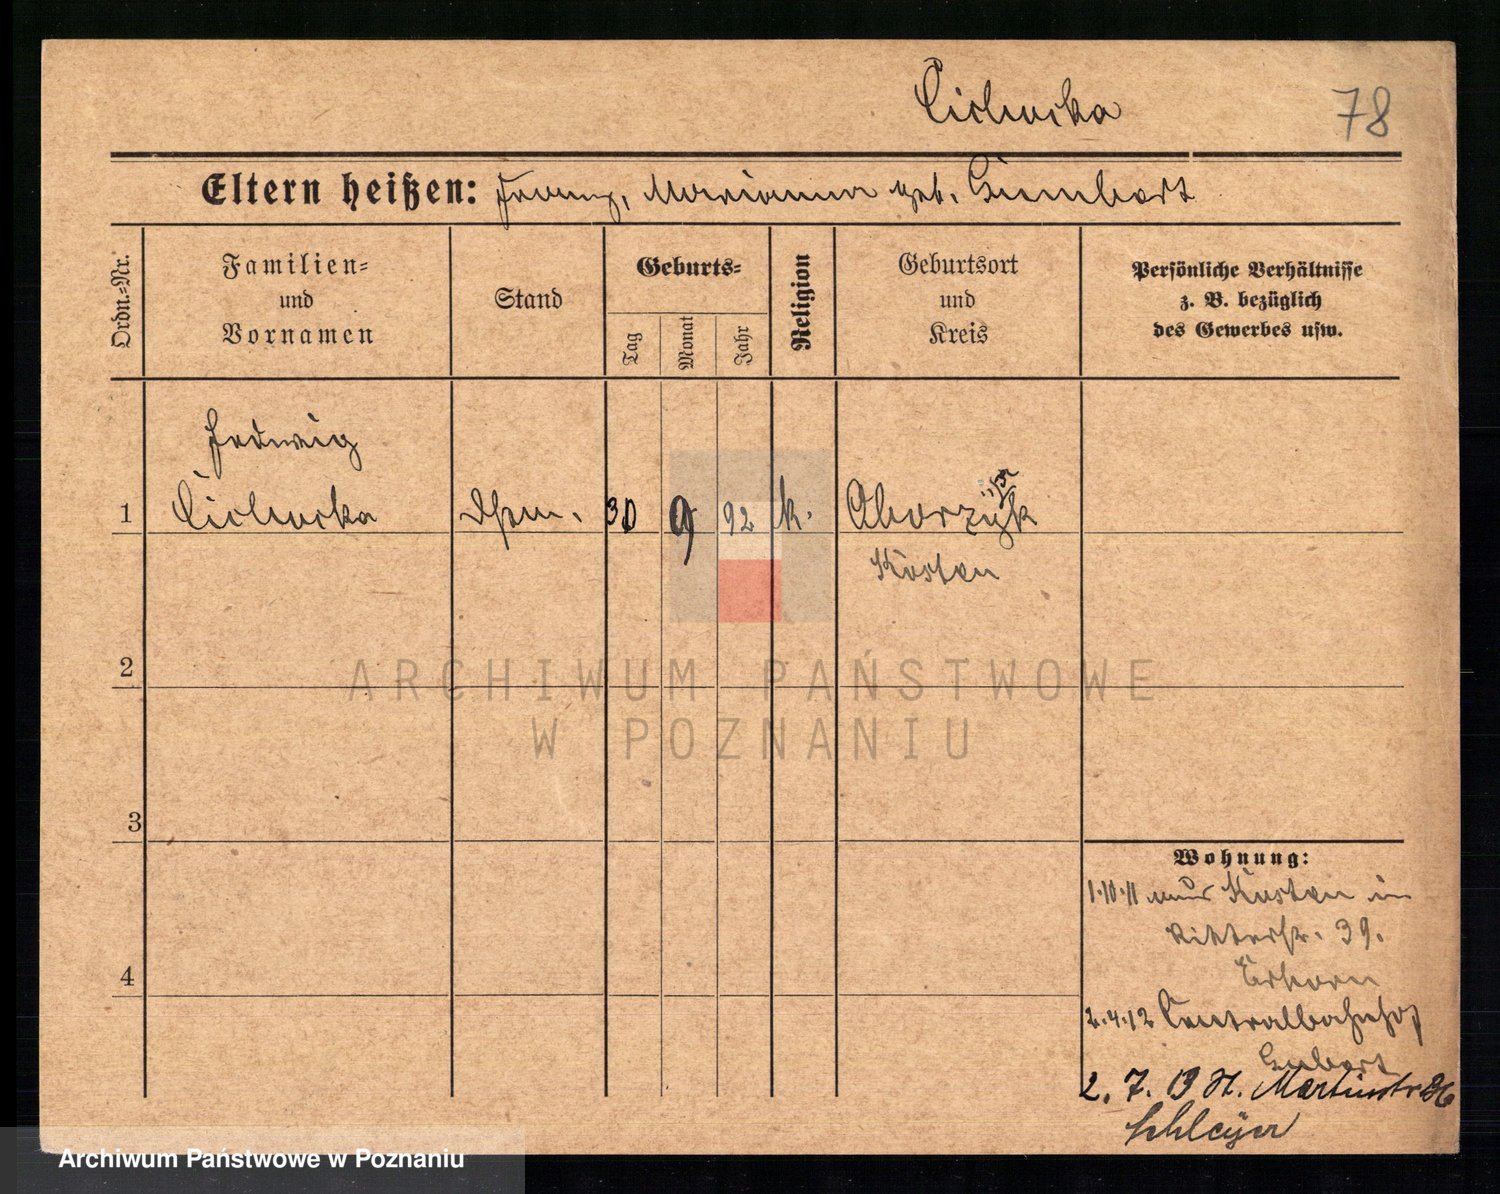 Cichucka
78
Eltern heißen: Franz, Marianna geb. Gumbert
Ordn.=Nr.
Familien=
und
Vornamen
Stand
Geburts=
Tag
Monat
Jahr
Religion
Geburtsort
und
Kreis
Persönliche Verhältnisse
z. B. bezüglich
des Gewerbes usw.
Hedwig
1 30 9 92 k.
Kosten
2
3
4
Wohnung:
1.10.11 aus Kosten in
Ritterstr. 39.
2.4.12 Centralbahnhof
2. 7. 13 St. Martinstr 36
Schleyer
ARCHIWUM PAŃSTWOWE
W POZNANIU
Archiwum Państwowe w Poznaniu